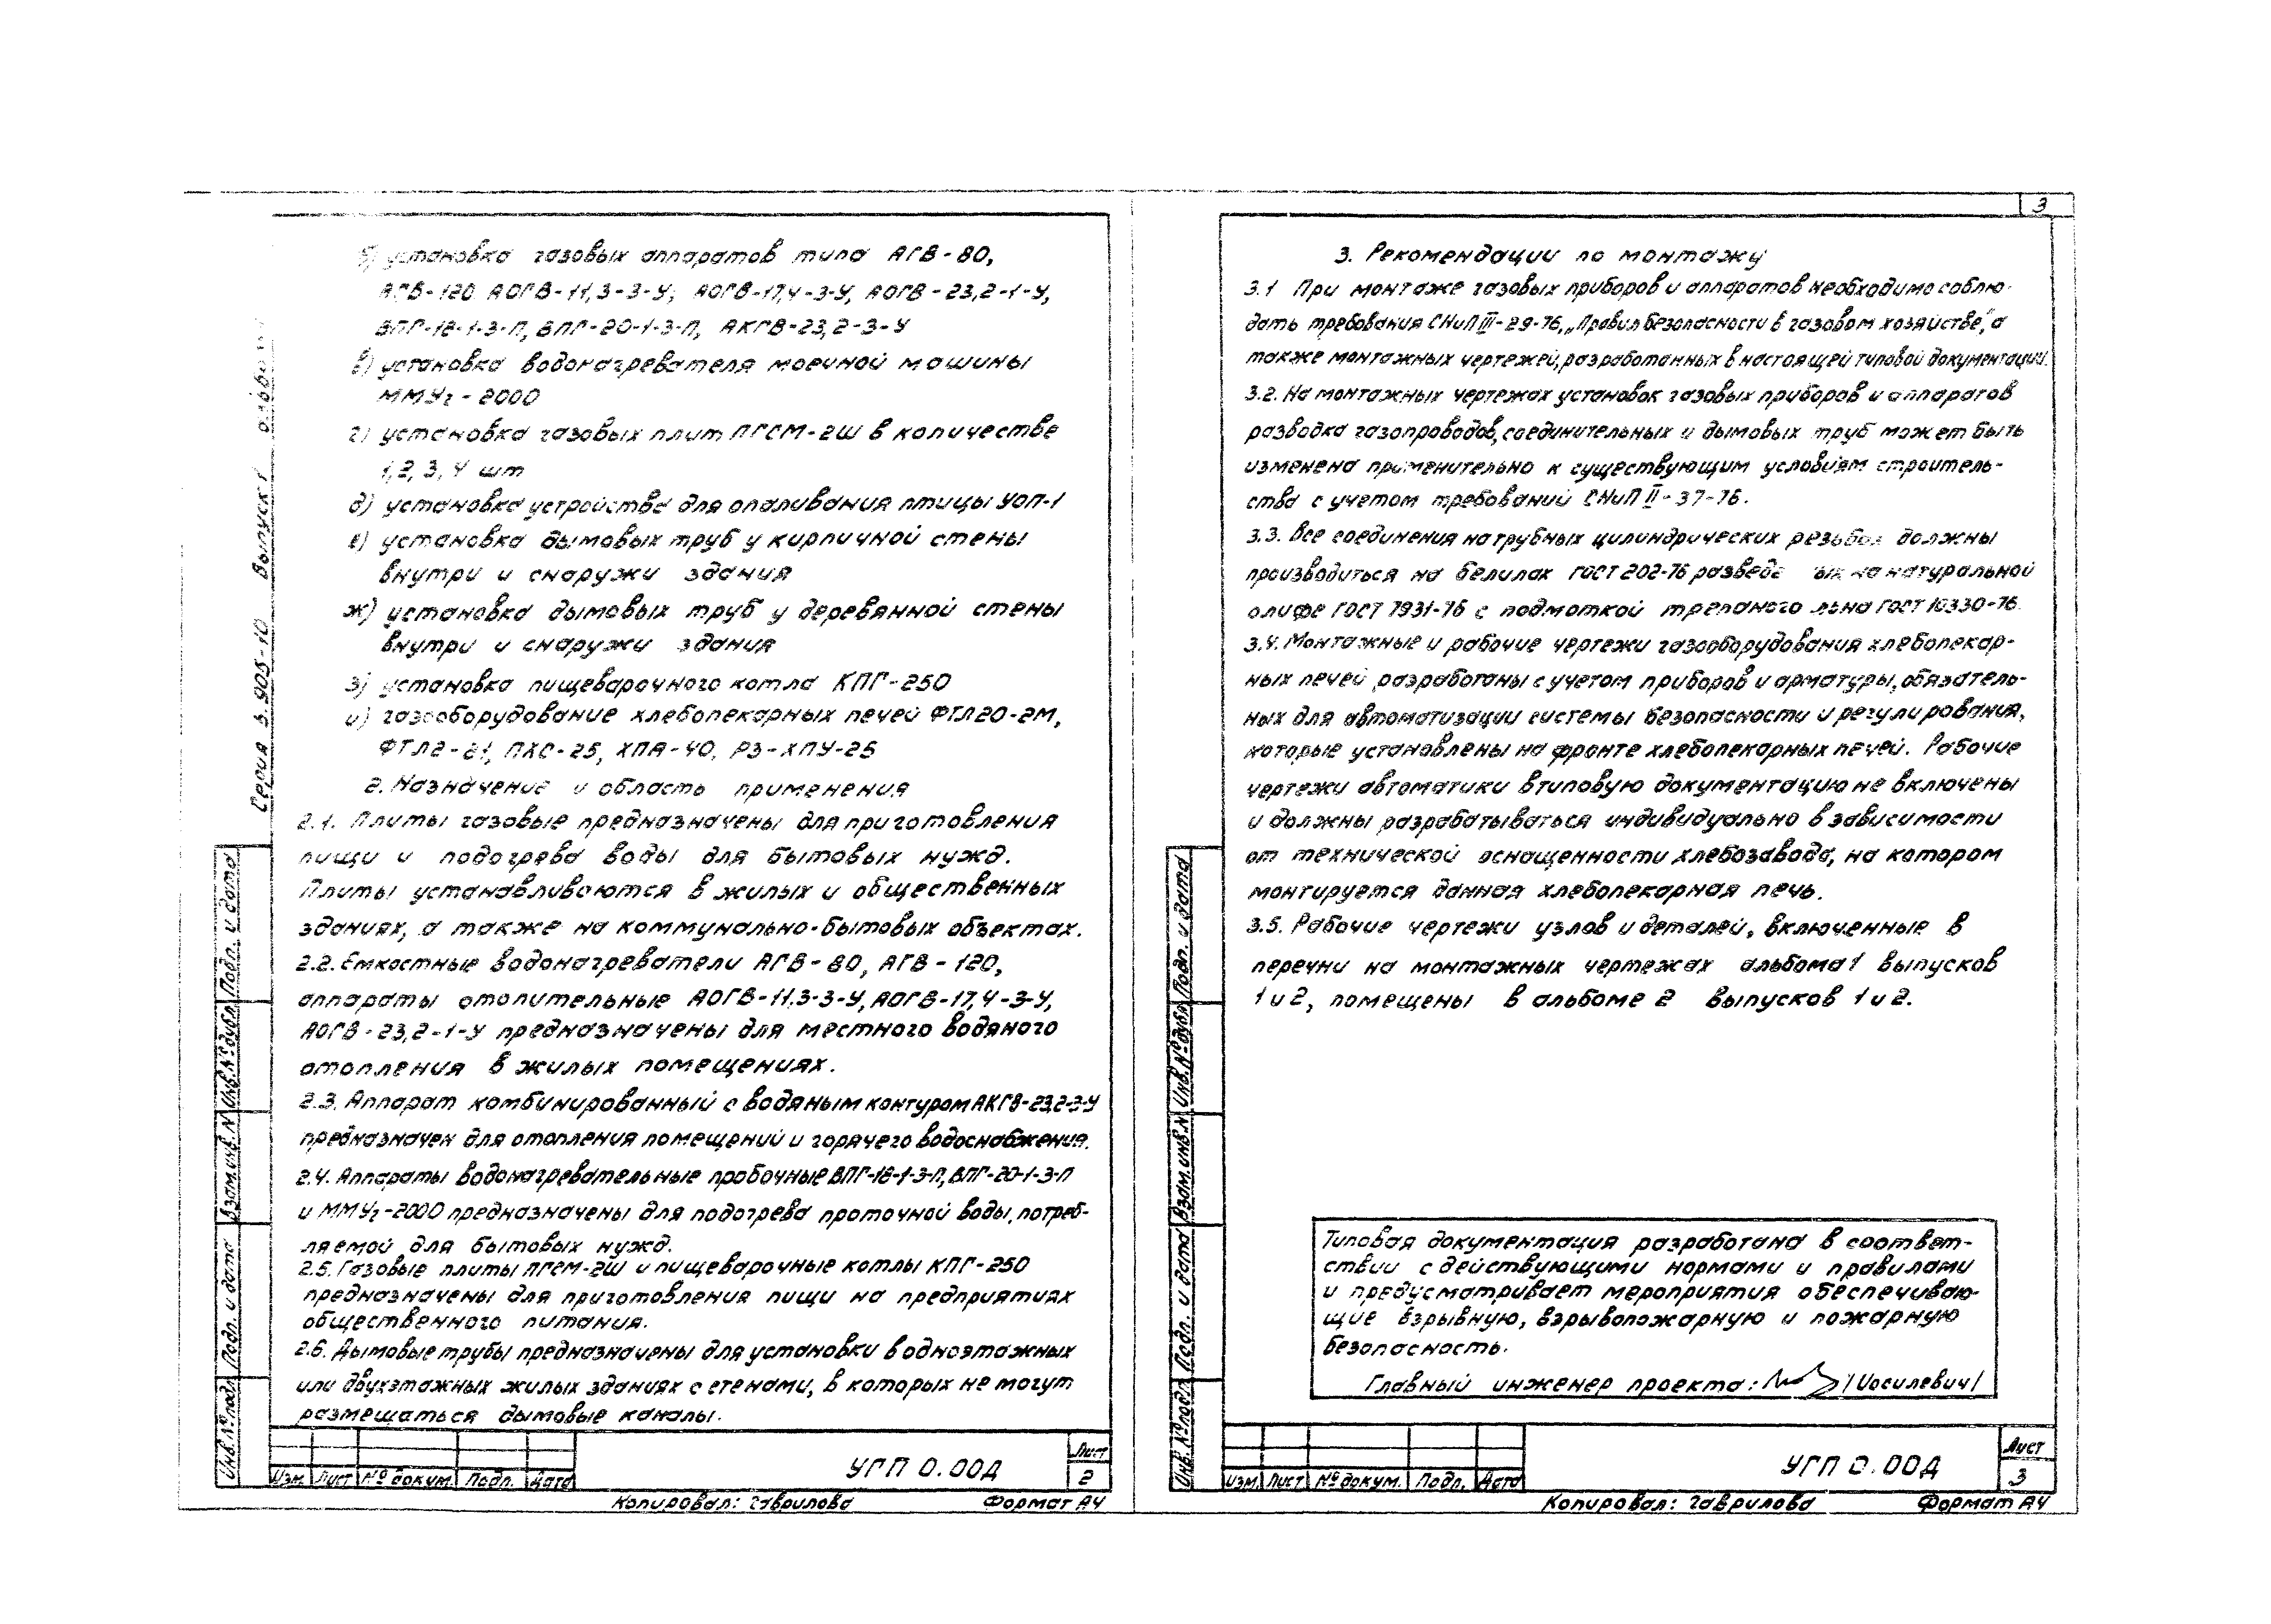 б) установка газовых аппаратов типа АГВ-80,
АГВ-120 АОГВ-11,3-3-У; АОГВ-17,4-3-У, АОГВ-23,2-1-У,
ВПГ-18-1-3-П, ВПГ-20-1-3-П, АКГВ-23,2-3-У
в) установка водонагревателя моечной машины
ММУг-2000
г) установка газовых плит ПГСМ-2Ш в количестве
1, 2, 3, 4 шт
д) установка устройства для опаливания птицы УОП-1
е) установка дымовых труб у кирпичной стены
внутри и снаружи здания
ж) установка дымовых труб у деревянной стены
внутри и снаружи здания
з) установка пищеварочного котла КПГ-250
и) газооборудование хлебопекарных печей ФТЛ20-2М,
ФТЛ2-81, ПХС-25, ХПА-40, РЗ-ХПУ-25
2. Назначение и область применения
2.1. Плиты газовые предназначены для приготовления
пищи и подогрева воды для бытовых нужд.
Плиты устанавливаются в жилых и общественных
зданиях, а также на коммунально-бытовых объектах.
2.2. Емкостные водонагреватели АГВ-80, АГВ-120,
аппараты отопительные АОГВ-11,3-3-У, АОГВ-17,4-3-У,
АОГВ-23,2-1-У предназначены для местного водяного
отопления в жилых помещениях.
2.3. Аппарат комбинированный с водяным контуром АКГВ-23,2-3-У
предназначен для отопления помещений и горячего водоснабжения.
2.4. Аппараты водонагревательные пробочные ВПГ-18-1-3-П, ВПГ-20-1-3-П
и ММУг-2000 предназначены для подогрева проточной воды, потреб-
ляемой для бытовых нужд.
2.5. Газовые плиты ПГСМ-2Ш и пищеварочные котлы КПГ-250
предназначены для приготовления пищи на предприятиях
общественного питания.
2.6. Дымовые трубы предназначены для установки в одноэтажных
или двухэтажных жилых зданиях с стенами, в которых не могут
размещаться дымовые каналы.
Серия 3.905-10 Выпуск 1
Инв. № подл. Подп. и дата Взам. инв. № Инв. № дубл. Подп. и дата
Изм. Лист № докум. Подп. Дата
УГП 0.00Д
Лист
2
Копировал: Гаврилова Формат А4
3
3. Рекомендации по монтажу
3.1 При монтаже газовых приборов и аппаратов необходимо соблю-
дать требования СНиП III-29-76, „Правил безопасности в газовом хозяйстве", а
также монтажных чертежей, разработанных в настоящей типовой документации.
3.2. На монтажных чертежах установок газовых приборов и аппаратов
разводка газопроводов, соединительных и дымовых труб может быть
изменена применительно к существующим условиям строитель-
ства с учетом требований СНиП II-37-76.
3.3. Все соединения на трубных цилиндрических резьбах должны
производиться на белилах ГОСТ 202-76 на натуральной
олифе ГОСТ 7931-76 с подмоткой трепаного льна ГОСТ 10330-76.
3.4. Монтажные и рабочие чертежи газооборудования хлебопекар-
ных печей разработаны с учетом приборов и арматуры, обязатель-
ных для автоматизации системы безопасности и регулирования,
которые установлены на фронте хлебопекарных печей. Рабочие
чертежи автоматики в типовую документацию не включены
и должны разрабатываться индивидуально в зависимости
от технической оснащенности хлебозавода, на котором
монтируется данная хлебопекарная печь.
3.5. Рабочие чертежи узлов и деталей, включенные в
перечни на монтажных чертежах альбома 1 выпусков
1 и 2, помещены в альбоме 2 выпусков 1 и 2.
Типовая документация разработана в соответ-
ствии с действующими нормами и правилами
и предусматривает мероприятия обеспечиваю-
щие взрывную, взрывопожарную и пожарную
безопасность.
Главный инженер проекта: /Иосилевич/
Инв. № подл. Подп. и дата Взам. инв. № Инв. № дубл. Подп. и дата
Изм. Лист № докум. Подп. Дата
УГП 0.00Д
Лист
3
Копировал: Гаврилова Формат А4